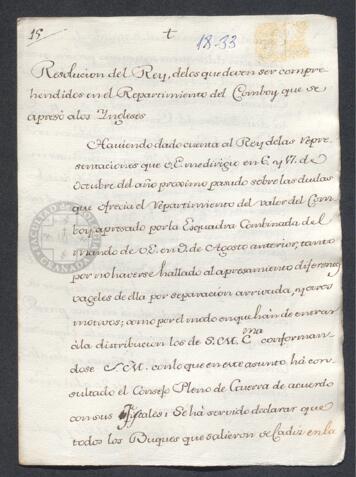 15 t 18-33
Resolucion del Rey, de los que deven ser compre
hendidos en el Repartimiento del Comboy que se
apresó alos Ingleses
Haviendo dado cuenta al Rey delas repre
sentaciones que V.E. me dirigio en 6 y 17. de
Octubre del año proximo pasado sobre las dudas
que ofrecia el repartimiento del valor del Com
boy apresado por la Esquadra Combinada del
mando de V.E. en 9. de Agosto anterior; tanto
por no haverse hallado al apresamiento diferentes
vageles de ella por separación arrivada, y otros
motivos; como por el modo en que hán de entrar
ála distribucion los de S.M.C.ma conforman
dose S.M. con lo que en este asunto há con
sultado el Consejo Pleno de Guerra de acuerdo
con sus Fiscales: Se há servido declarar que
todos los Buques que salieron de Cadiz en la